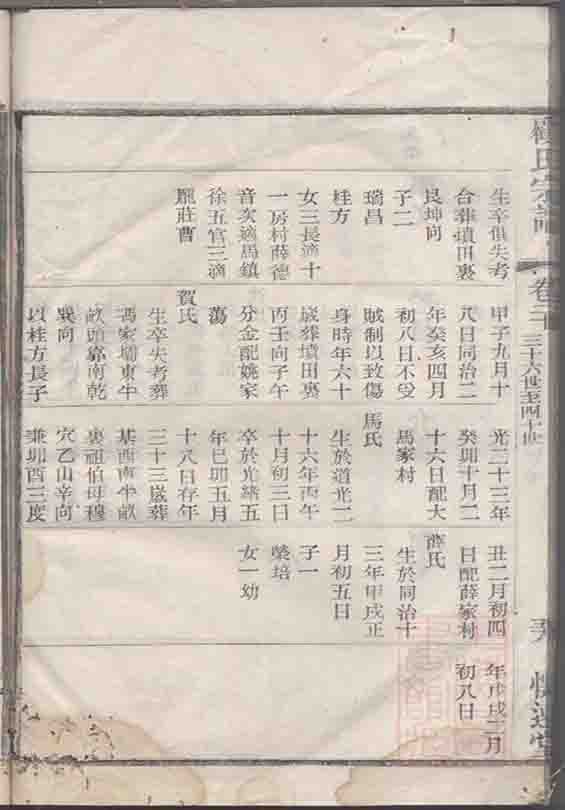 顧氏宗譜
卷二十
三十六世至四十世
生卒俱失考
合葬墳田裏
艮坤向
子二
瑞昌
桂方
女三長適十
一房村薛德
音次適馬鎮
徐五官三適
龐莊曹
甲子九月十
八日同治二
年癸亥四月
初八日不受
賊制以致傷
身時年六十
歲葬墳田裏
丙壬向子午
分金配姚家
蕩
賀氏
生卒失考葬
馮家壩東牛
畝頭靠南乾
巽向
以桂方長子
光二十三年
癸卯十月二
十六日配大
馬家村
馬氏
生於道光二
十六年丙午
十月初三日
卒於光緒五
年己卯五月
十八日存年
三十三歲葬
基西南半畝
裏祖伯母穆
穴乙山辛向
兼卯酉三度
丑二月初四
日配薛家村
薛氏
生於同治十
三年甲戌正
月初五日
子一
榮培
女一幼
年戊戌二月
初八日